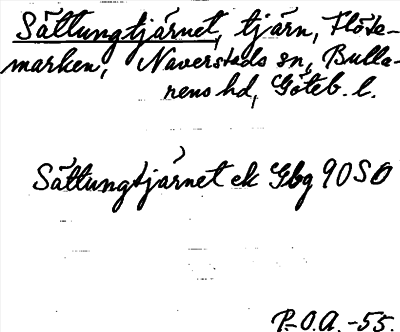 Sältungtjärnet, tjärn, Flöte-
marken, Naverstads sn, Bulla-
rens hd, Göteb. l.
Sältungtjärnet ek Gbg 90 SO
P.-O.A. -55.